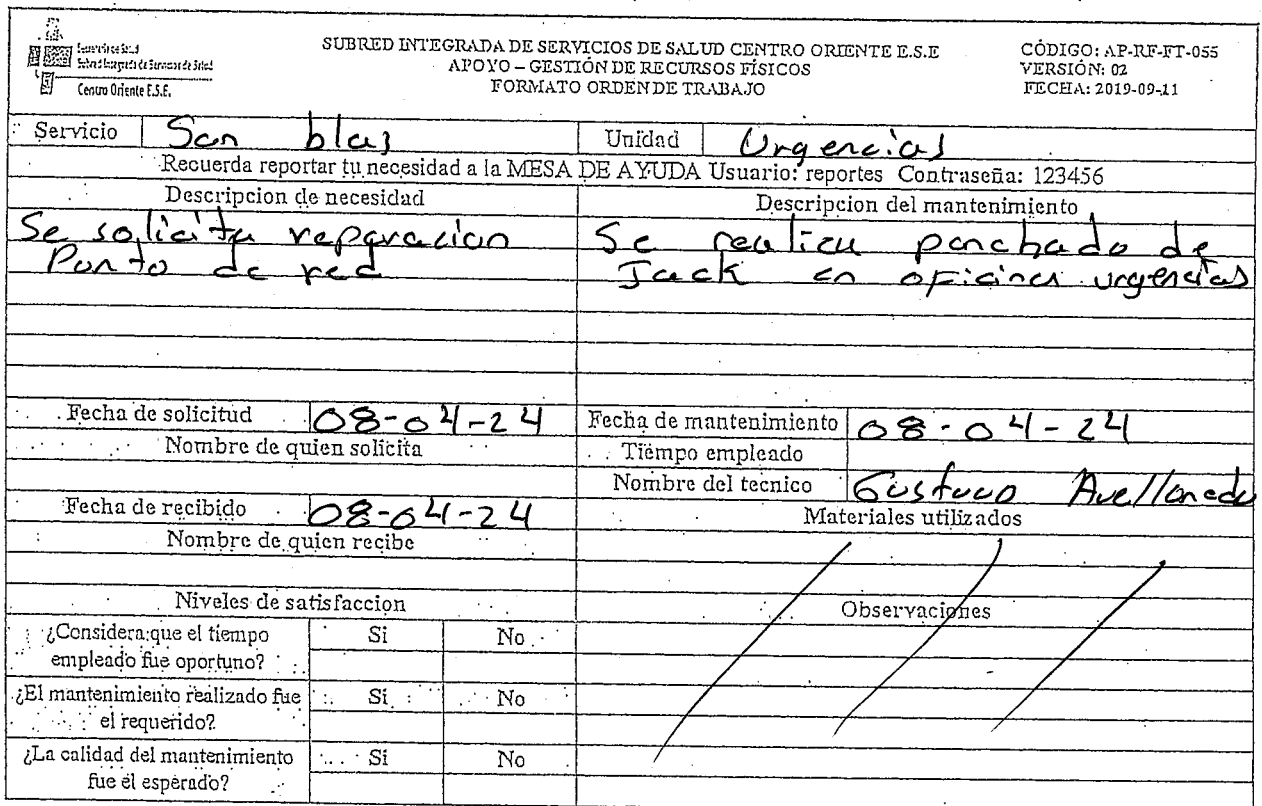 Subred Integrada de Servicios de Salud
Centro Oriente E.S.E.
SUBRED INTEGRADA DE SERVICIOS DE SALUD CENTRO ORIENTE E.S.E
APOYO – GESTIÓN DE RECURSOS FÍSICOS
FORMATO ORDEN DE TRABAJO
CÓDIGO: AP-RF-FT-055
VERSIÓN: 02
FECHA: 2019-09-11
Servicio San blas Unidad Urgencias
Recuerda reportar tu necesidad a la MESA DE AYUDA Usuario: reportes Contraseña: 123456
Descripcion de necesidad
Se solicita reparacion
Punto de red
Descripcion del mantenimiento
Se realiza ponchado de
Jack en oficina urgencias
Fecha de solicitud 08-04-24
Nombre de quien solicita
Fecha de recibido 08-04-24
Nombre de quien recibe
Fecha de mantenimiento 08-04-24
Tiempo empleado
Nombre del tecnico Gustavo Avellaneda
Materiales utilizados
Niveles de satisfaccion
¿Considera que el tiempo
empleado fue oportuno?
Si No
¿El mantenimiento realizado fue
el requerido?
Si No
¿La calidad del mantenimiento
fue el esperado?
Si No
Observaciones